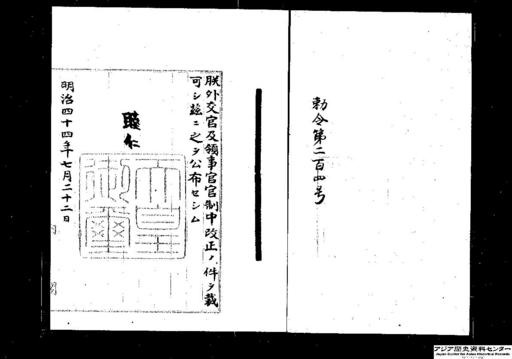 勅令第二百四号
朕外交官及領事官官制中改正ノ件ヲ裁
可シ茲ニ之ヲ公布セシム
睦仁
天皇御璽
明治四十四年七月二十二日
アジア歴史資料センター
Japan Center for Asian Historical Records